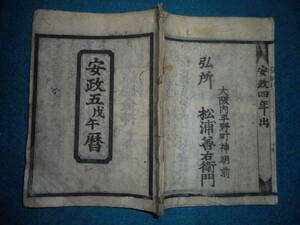 安政四年出
大阪内平野町神明前
弘所 松浦善右衛門
安政五戊午暦